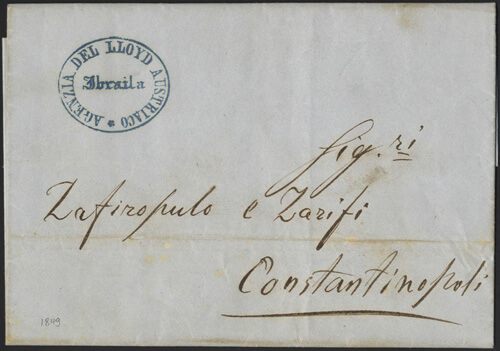 AGENZIA DEL LLOYD AUSTRIACO *
Ibraila
Sig.ri
Zafiropulo e Zarifi
Constantinopoli
1849